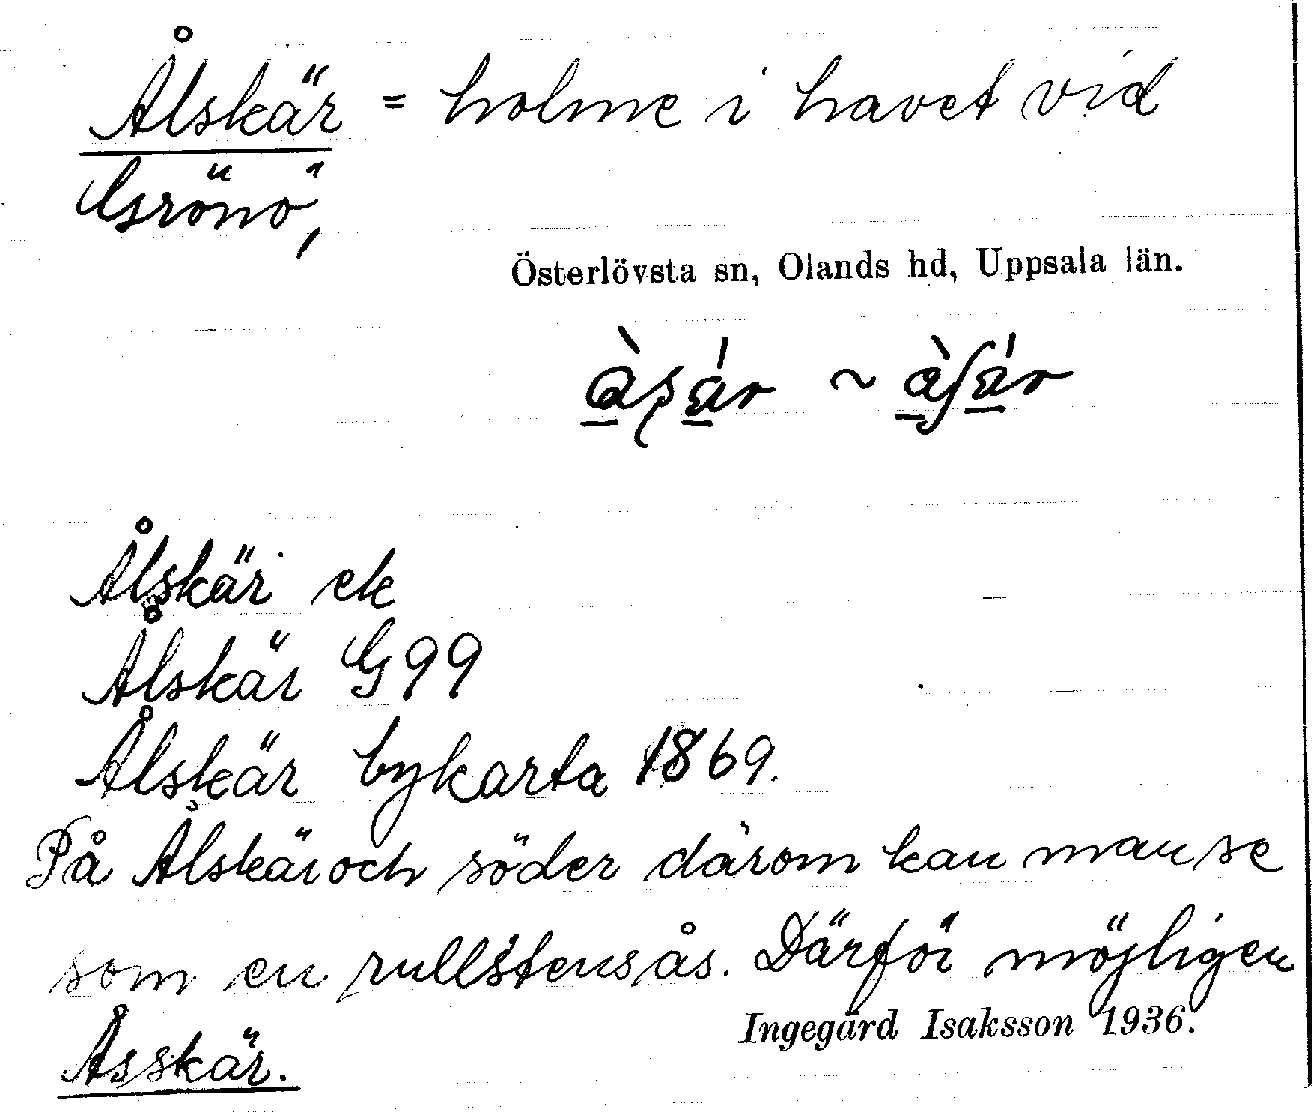 Ålskär = holme i havet vid
Grönö,
Österlövsta sn, Olands hd, Uppsala län.
~
Ålskär ek
Ålskär G99
Ålskär bykarta 1869.
På Ålskär och söder därom kan man se
som en rullstensås. Därför möjligen
Ingegärd Isaksson 1936.
Åsskär.